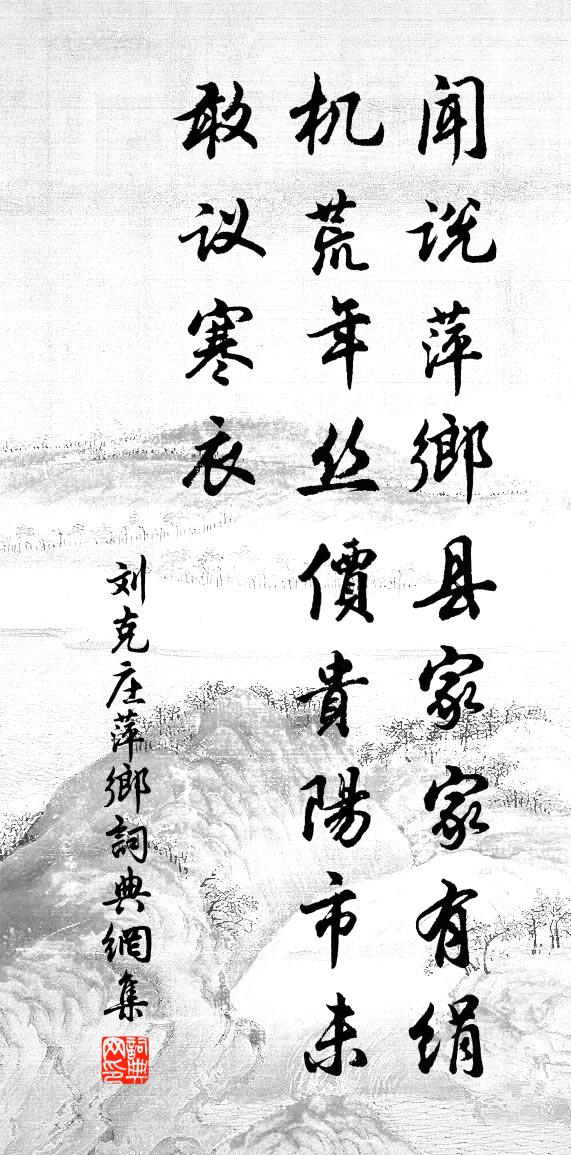 闻说萍鄉县家家有绢
机荒年丝價貴陽市未
敢议寒衣
刘克庄萍鄉詞典網集
詞典网印